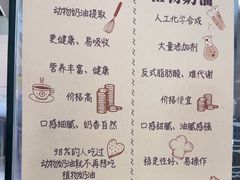 动物奶油提取
人工化学合成
更健康、易吸收
大量添加剂
营养丰富、健康
反式脂肪酸、难代谢
价格高
价格便宜
口感细腻、奶香自然
口感甜腻、油腻感强
98%的人吃过
动物奶油就不再想吃
植物奶油
稳定性好、易操作